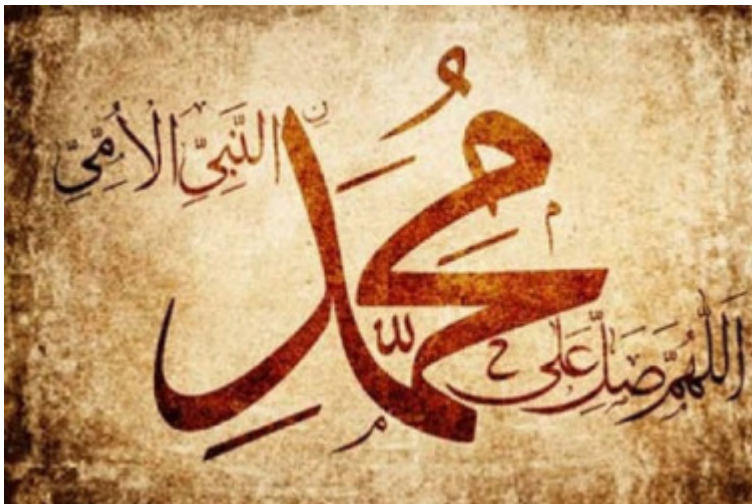 اَللّٰهُمَّ صَلِّ عَلٰى
مُحَمَّدٍ
النَّبِيِّ الْاُمِّيِّ